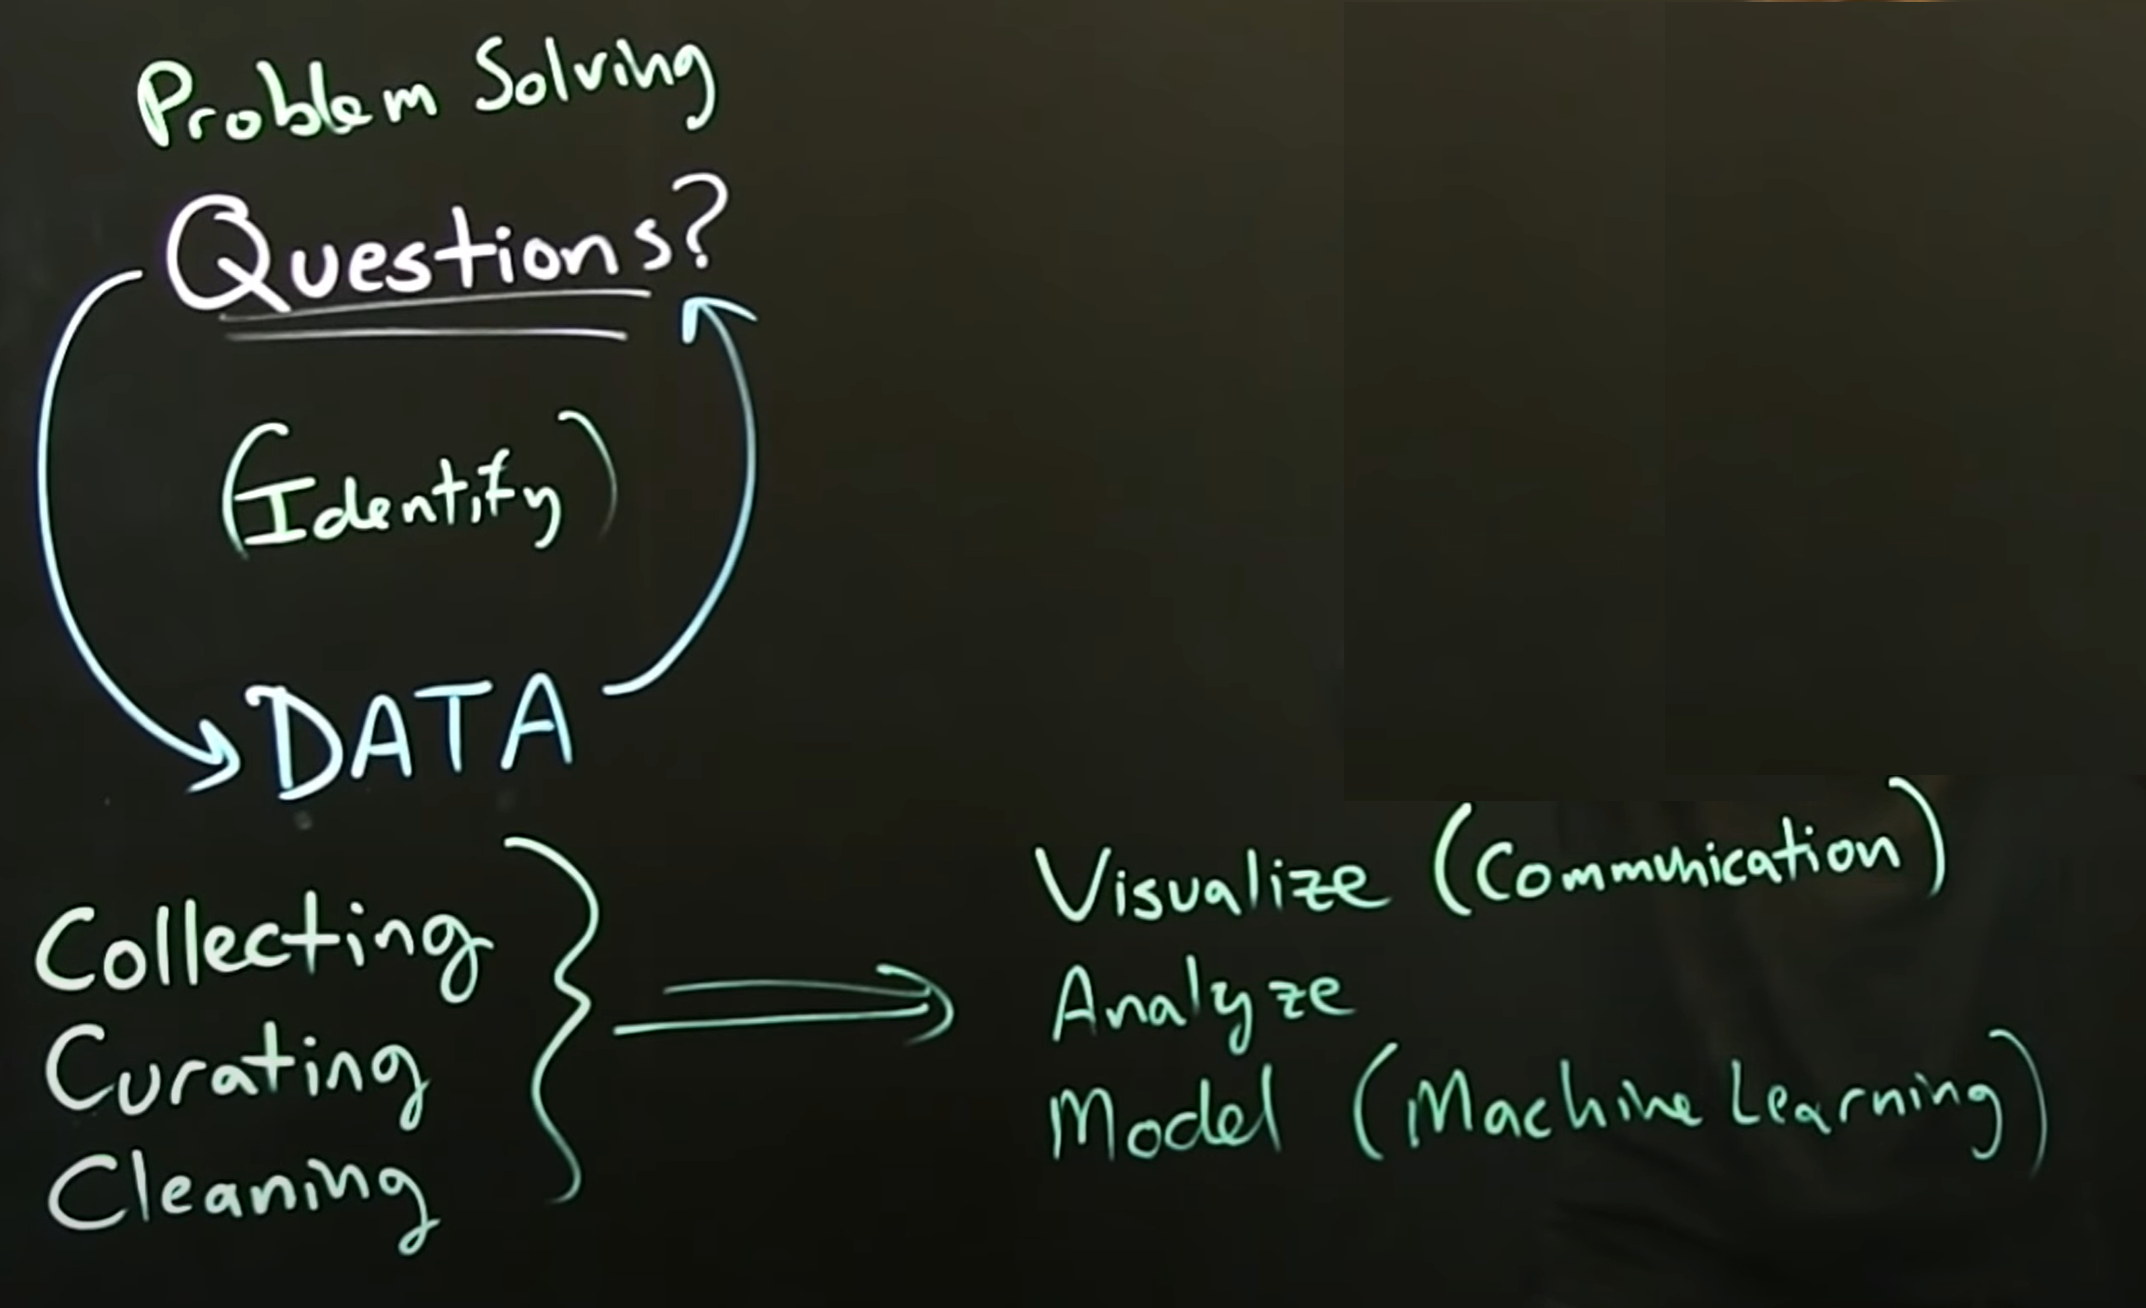 Problem Solving
Questions?
(Identify)
DATA
Collecting
Curating
Cleaning
Visualize (Communication)
Analyze
Model (Machine Learning)